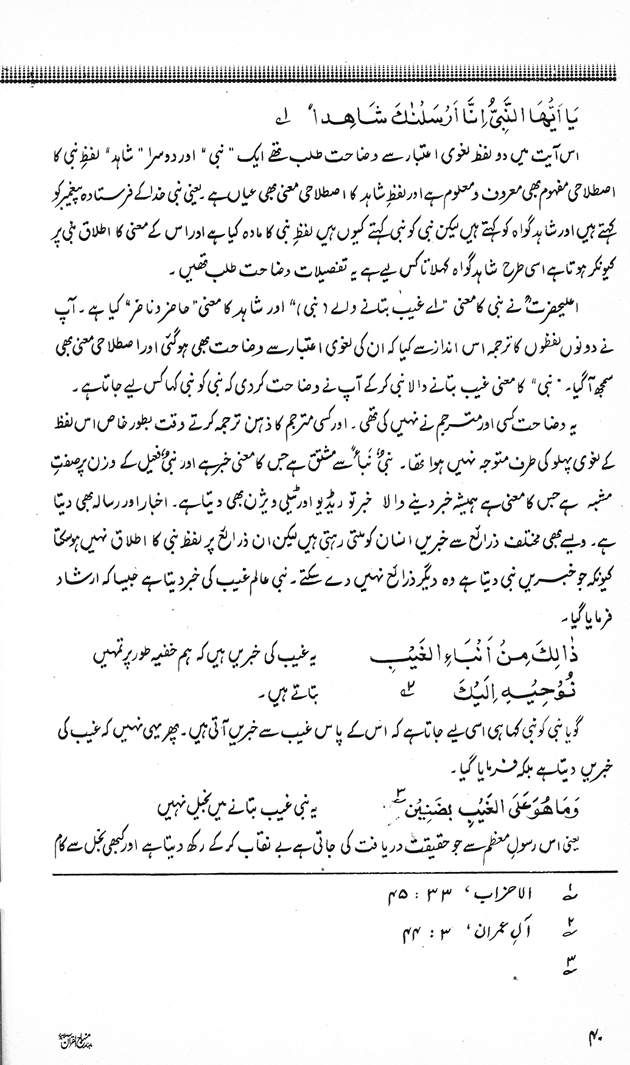 یَا اَیُّهَا النَّبِیُّ اِنَّا اَرْسَلْنٰكَ شَاهِداً ۱؎
اس آیت میں دو لفظ لغوی اعتبار سے وضاحت طلب تھے ایک "نبی" اور دوسرا "شاہد" لفظِ نبی کا
اصطلاحی مفہوم بھی معروف و معلوم ہے اور لفظِ شاہد کا اصطلاحی معنی بھی عیاں ہے۔ یعنی نبی خدا کے فرستادہ پیغمبر کو
کہتے ہیں اور شاہد گواہ کو کہتے ہیں لیکن نبی کو نبی کہتے کیوں ہیں لفظِ نبی کا مادہ کیا ہے اور اس کے معنی کا اطلاق نبی پر
کیونکر ہوتا ہے اسی طرح شاہد گواہ کہلاتا کس لیے ہے یہ تفصیلات وضاحت طلب تھیں۔
اعلیٰحضرتؒ نے نبی کا معنی "اے غیب بتانے والے (نبی)" اور شاہد کا معنی "حاضر و ناظر" کیا ہے۔ آپ
نے دونوں لفظوں کا ترجمہ اس انداز سے کیا کہ ان کی لغوی اعتبار سے وضاحت بھی ہو گئی اور اصطلاحی معنی بھی
سمجھ آ گیا۔ "نبی" کا معنی غیب بتانے والا نبی کر کے آپ نے وضاحت کر دی کہ نبی کو نبی کہا کس لیے جاتا ہے۔
یہ وضاحت کسی اور مترجم نے نہیں کی تھی۔ اور کسی مترجم کا ذہن ترجمہ کرتے وقت بطور خاص اس لفظ
کے لغوی پہلو کی طرف متوجہ نہیں ہوا تھا۔ نبیٌ نَبَأٌ سے مشتق ہے جس کا معنی خبر ہے اور نبیٌ فعیل کے وزن پر صفتِ
مشبہ ہے جس کا معنی ہے ہمیشہ خبر دینے والا خبر تو ریڈیو اور ٹیلی ویژن بھی دیتا ہے۔ اخبار اور رسالہ بھی دیتا
ہے۔ ویسے بھی مختلف ذرائع سے خبریں انسان کو ملتی رہتی ہیں لیکن ان ذرائع پر لفظ نبی کا اطلاق نہیں ہو سکتا
کیونکہ جو خبریں نبی دیتا ہے وہ دیگر ذرائع نہیں دے سکتے۔ نبی عالم غیب کی خبر دیتا ہے جیسا کہ ارشاد
فرمایا گیا۔
ذَالِكَ مِنْ اَنْبَاءِ الْغَیْبِ یہ غیب کی خبریں ہیں کہ ہم خفیہ طور پر تمہیں
نُوْحِیْهِ اِلَیْكَ ۲؎ بتاتے ہیں۔
گویا نبی کو نبی کہا ہی اسی لیے جاتا ہے کہ اس کے پاس غیب سے خبریں آتی ہیں۔ پھر یہی نہیں کہ غیب کی
خبریں دیتا ہے بلکہ فرمایا گیا۔
وَمَا هُوَ عَلَی الْغَیْبِ بِضَنِیْن ۳؎ یہ نبی غیب بتانے میں بخیل نہیں
یعنی اس رسولِ معظم سے جو حقیقت دریافت کی جاتی ہے بے نقاب کر کے رکھ دیتا ہے اور کبھی بخل سے کام
۱؎ الاحزاب، ۳۳ : ۴۵
۲؎ آلِ عمران، ۳ : ۴۴
۳؎
۴۰